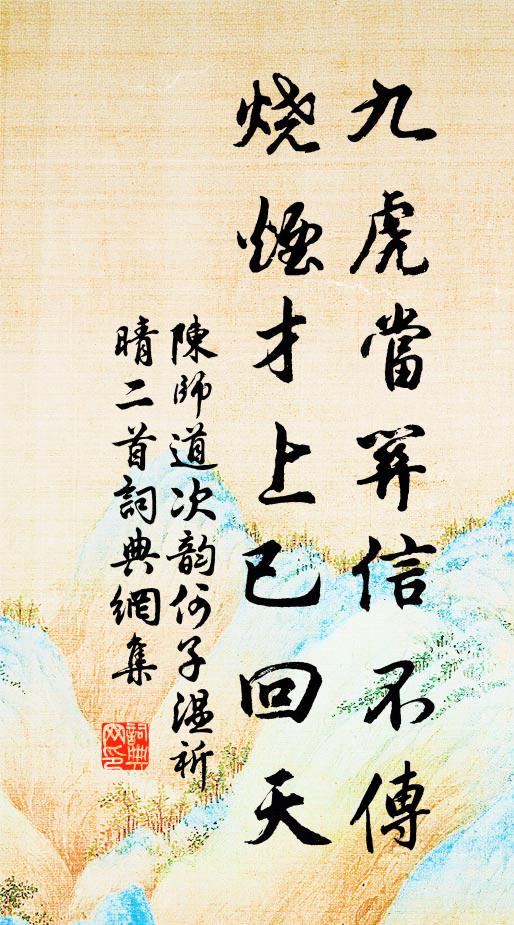 九虎當關信不傳
燒煙才上已回天
陳師道次韵何子溫祈
晴二首詞典網集
詞典
网印